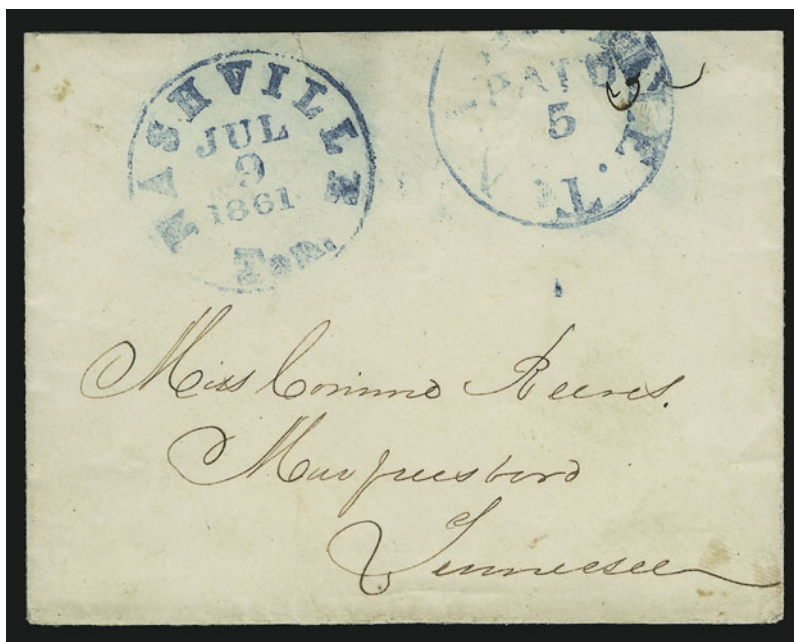 NASHVILLE
JUL
9
1861
Ten.
PAID
5
Miss Corinne Reeves.
Murfreesboro
Tennessee